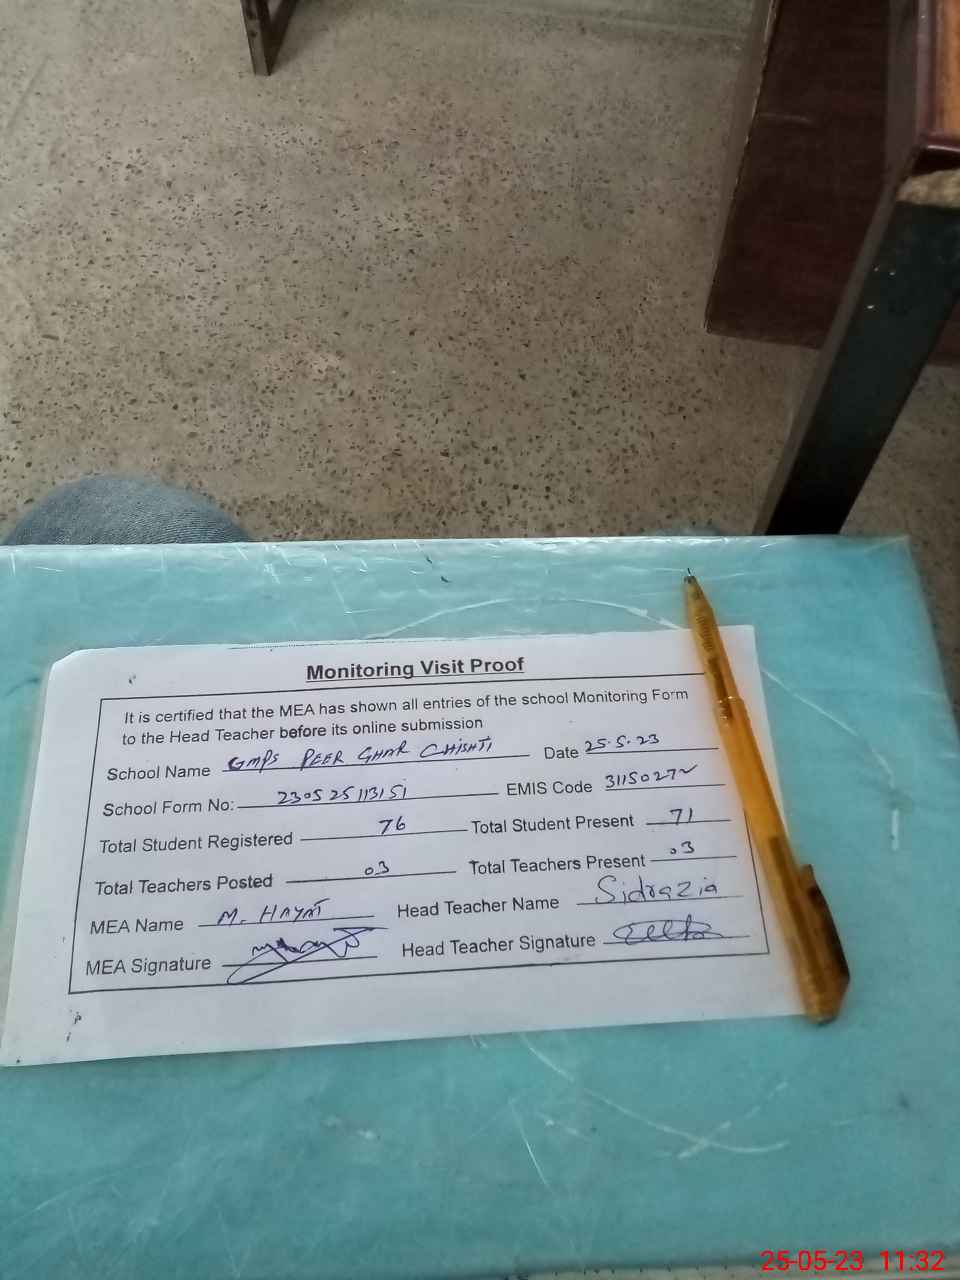 Monitoring Visit Proof
It is certified that the MEA has shown all entries of the school Monitoring Form
to the Head Teacher before its online submission
School Name GMPS PEER GHAR CHISHTI Date 25.5.23
School Form No: 230525113151 EMIS Code
Total Student Registered 76 Total Student Present 71
Total Teachers Posted 03 Total Teachers Present 03
MEA Name M. HAYAT Head Teacher Name Sidrazia
MEA Signature Head Teacher Signature
25-05-23 11:32